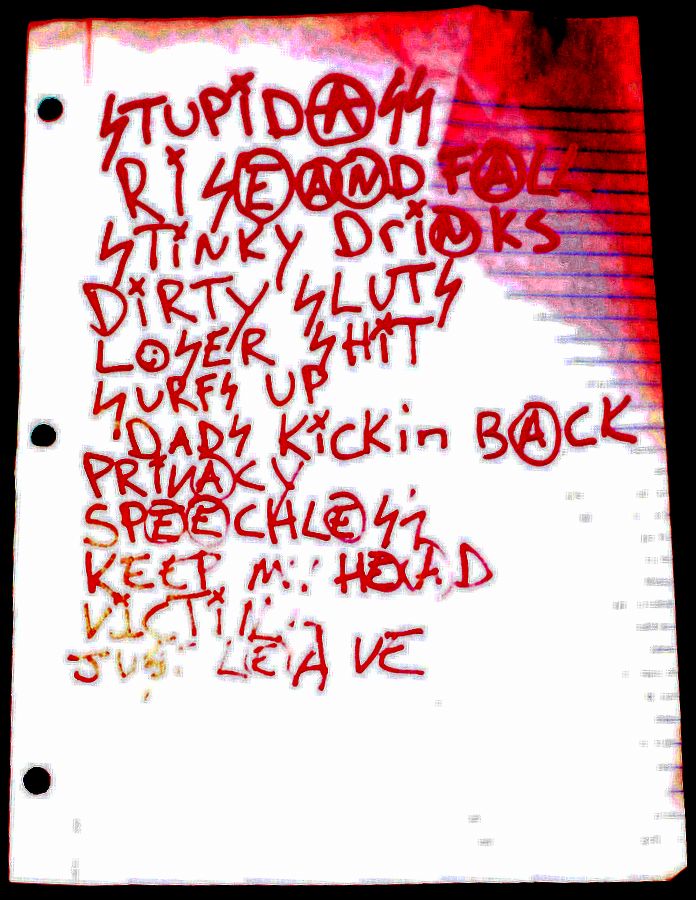 STUPiDASS
RiSE AND FALL
STiNKY DriNKS
DiRTY SLUTS
LOSER SHiT
SURFS UP
DADS KicKin BACK
PRiVACY
SPEECHLESS
KEEP HEAD
JUST LEAVE